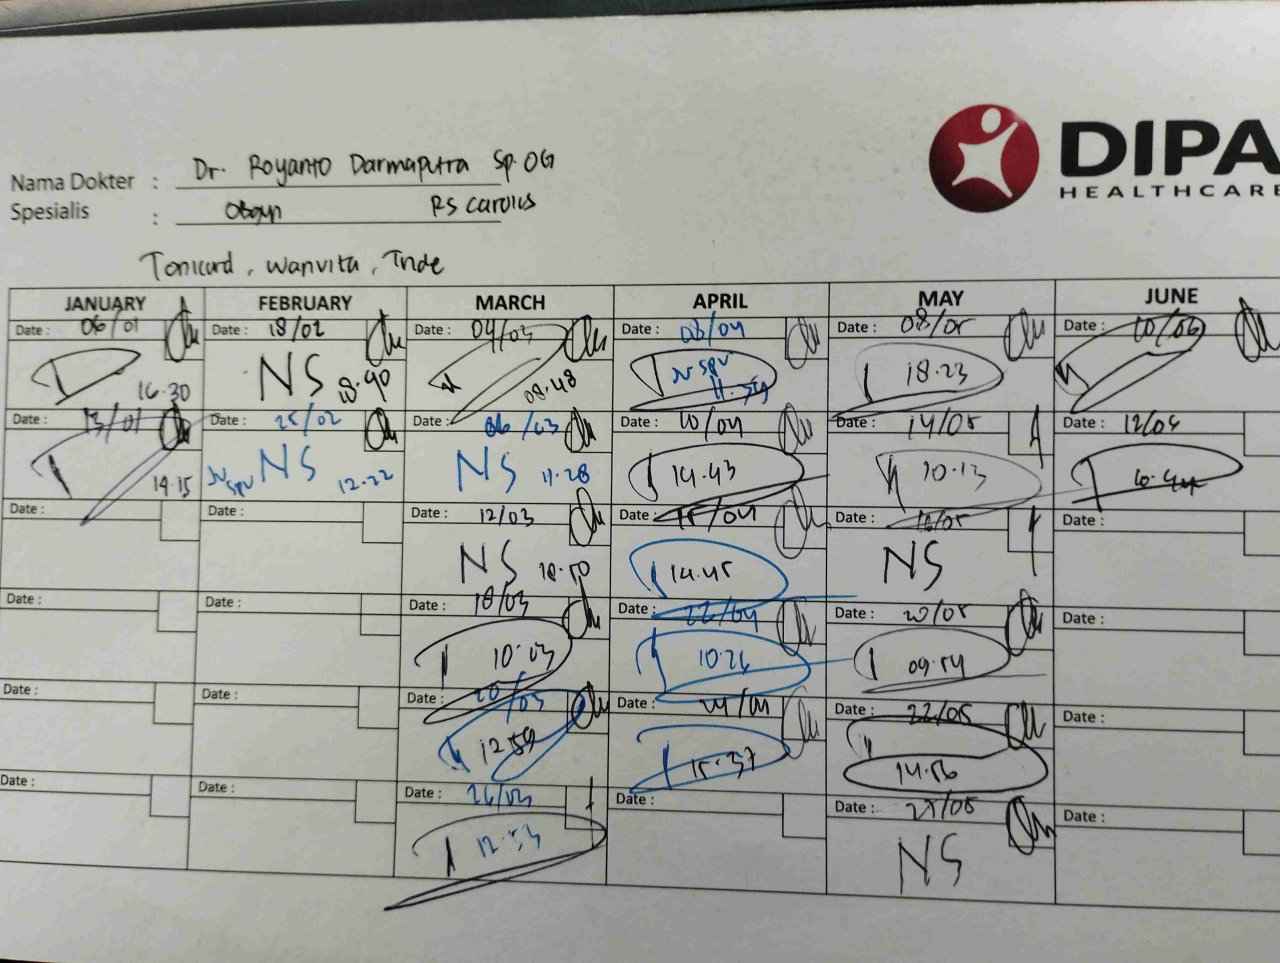 DIPA
HEALTHCARE
Nama Dokter : Dr. Royanto Darmaputra Sp.OG
Spesialis : Obgyn RS Carolus
Tonicard, Wanvita, Tride
JANUARY FEBRUARY MARCH APRIL MAY JUNE
Date : 06/01 Date : 18/02 Date : 04/03 Date : 08/04 Date : 08/05 Date : 10/06
16.30 NS 18.40 08.48 11.59 18.23
Date : 13/01 Date : 25/02 Date : 06/03 Date : 10/04 Date : 14/05 Date : 12/06
14.15 NS 12.22 NS 11.28 14.43 10.13
Date : Date : Date : 12/03 Date : 15/04 Date : 16/05 Date :
NS 18.50 14.45 NS
Date : Date : Date : 18/03 Date : 22/04 Date : 20/05 Date :
10.03 10.26 09.54
Date : Date : Date : 20/03 Date : 24/04 Date : 22/05 Date :
12.59 15.37 14.56
Date : Date : Date : 26/03 Date : Date : 27/05 Date :
12.53 NS